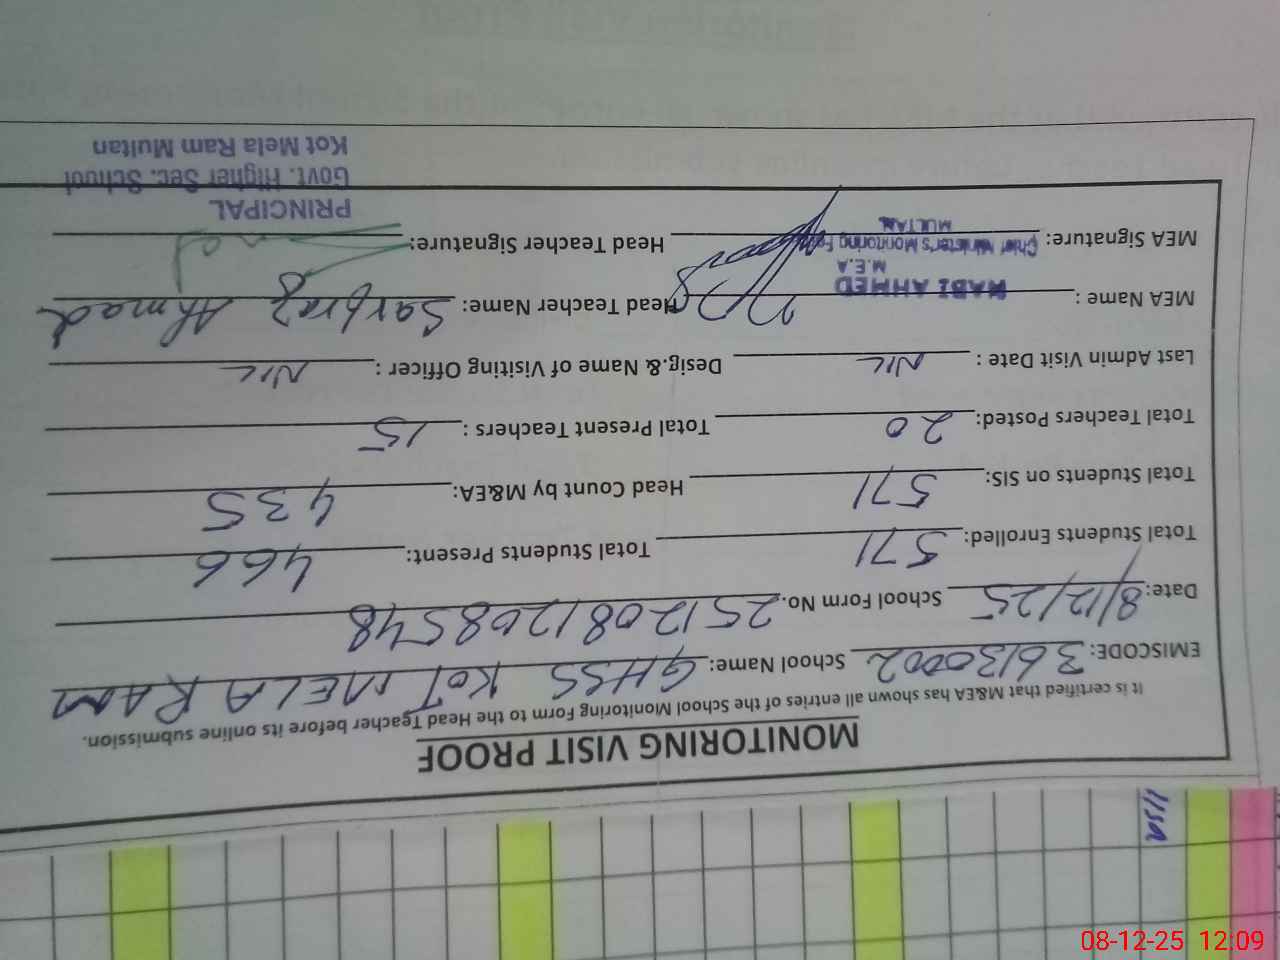 MONITORING VISIT PROOF
It is certified that M&EA has shown all entries of the School Monitoring Form to the Head Teacher before its online submission.
EMISCODE: 36130002 School Name: GHSS KOT MELA RAM
Date: 8/12/25 School Form No. 2512081208548
Total Students Enrolled: 571 Total Students Present: 466
Total Students on SIS: 571 Head Count by M&EA: 435
Total Teachers Posted: 20 Total Present Teachers : 15
Last Admin Visit Date : NIL Desig.& Name of Visiting Officer : NIL
MEA Name : NABI AHMED Head Teacher Name: Sarfraz Ahmad
M.E.A
Chief Minister's Monitoring
MULTAN
MEA Signature: Head Teacher Signature:
PRINCIPAL
Govt. Higher Sec. School
Kot Mela Ram Multan
08-12-25 12:09